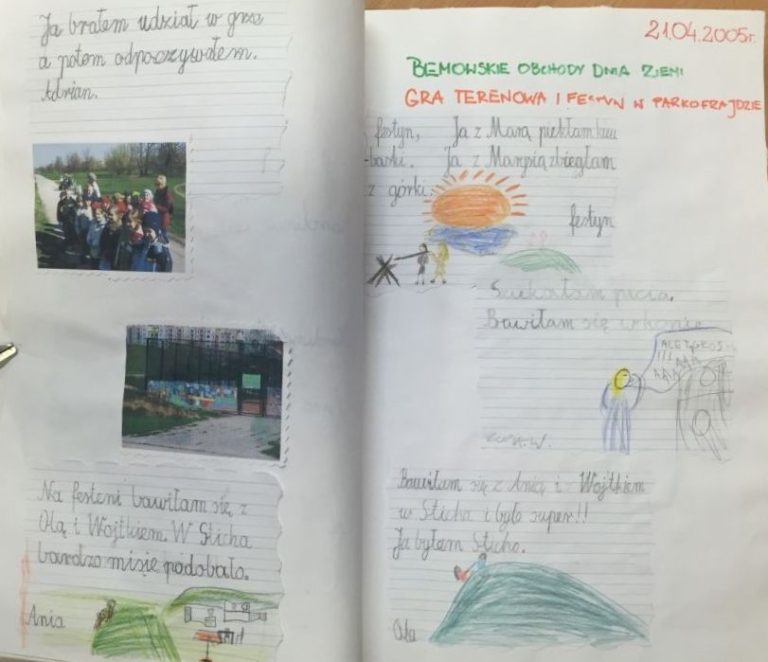 Ja brałem udział w grze
a potem odpoczywałem.
Adrian.
Na festeni bawiłam się z
Olą i Wojtkiem. W Sticha
bardzo misię podobało.
Ania
21.04.2005r.
BEMOWSKIE OBCHODY DNIA ZIEMI
GRA TERENOWA I FESTYN W PARKOFRAJDZIE
festyn, Ja z Marą piekłam kieu
-baski. Ja z Marysią zbiegłam
z górki.
festyn
Szukałam
Bawiłam się w
ALE TY
!!!
Bawiłam się z Anią i Wojtkiem
w Sticha i było super!!
Ja byłam Sticho.
Ola